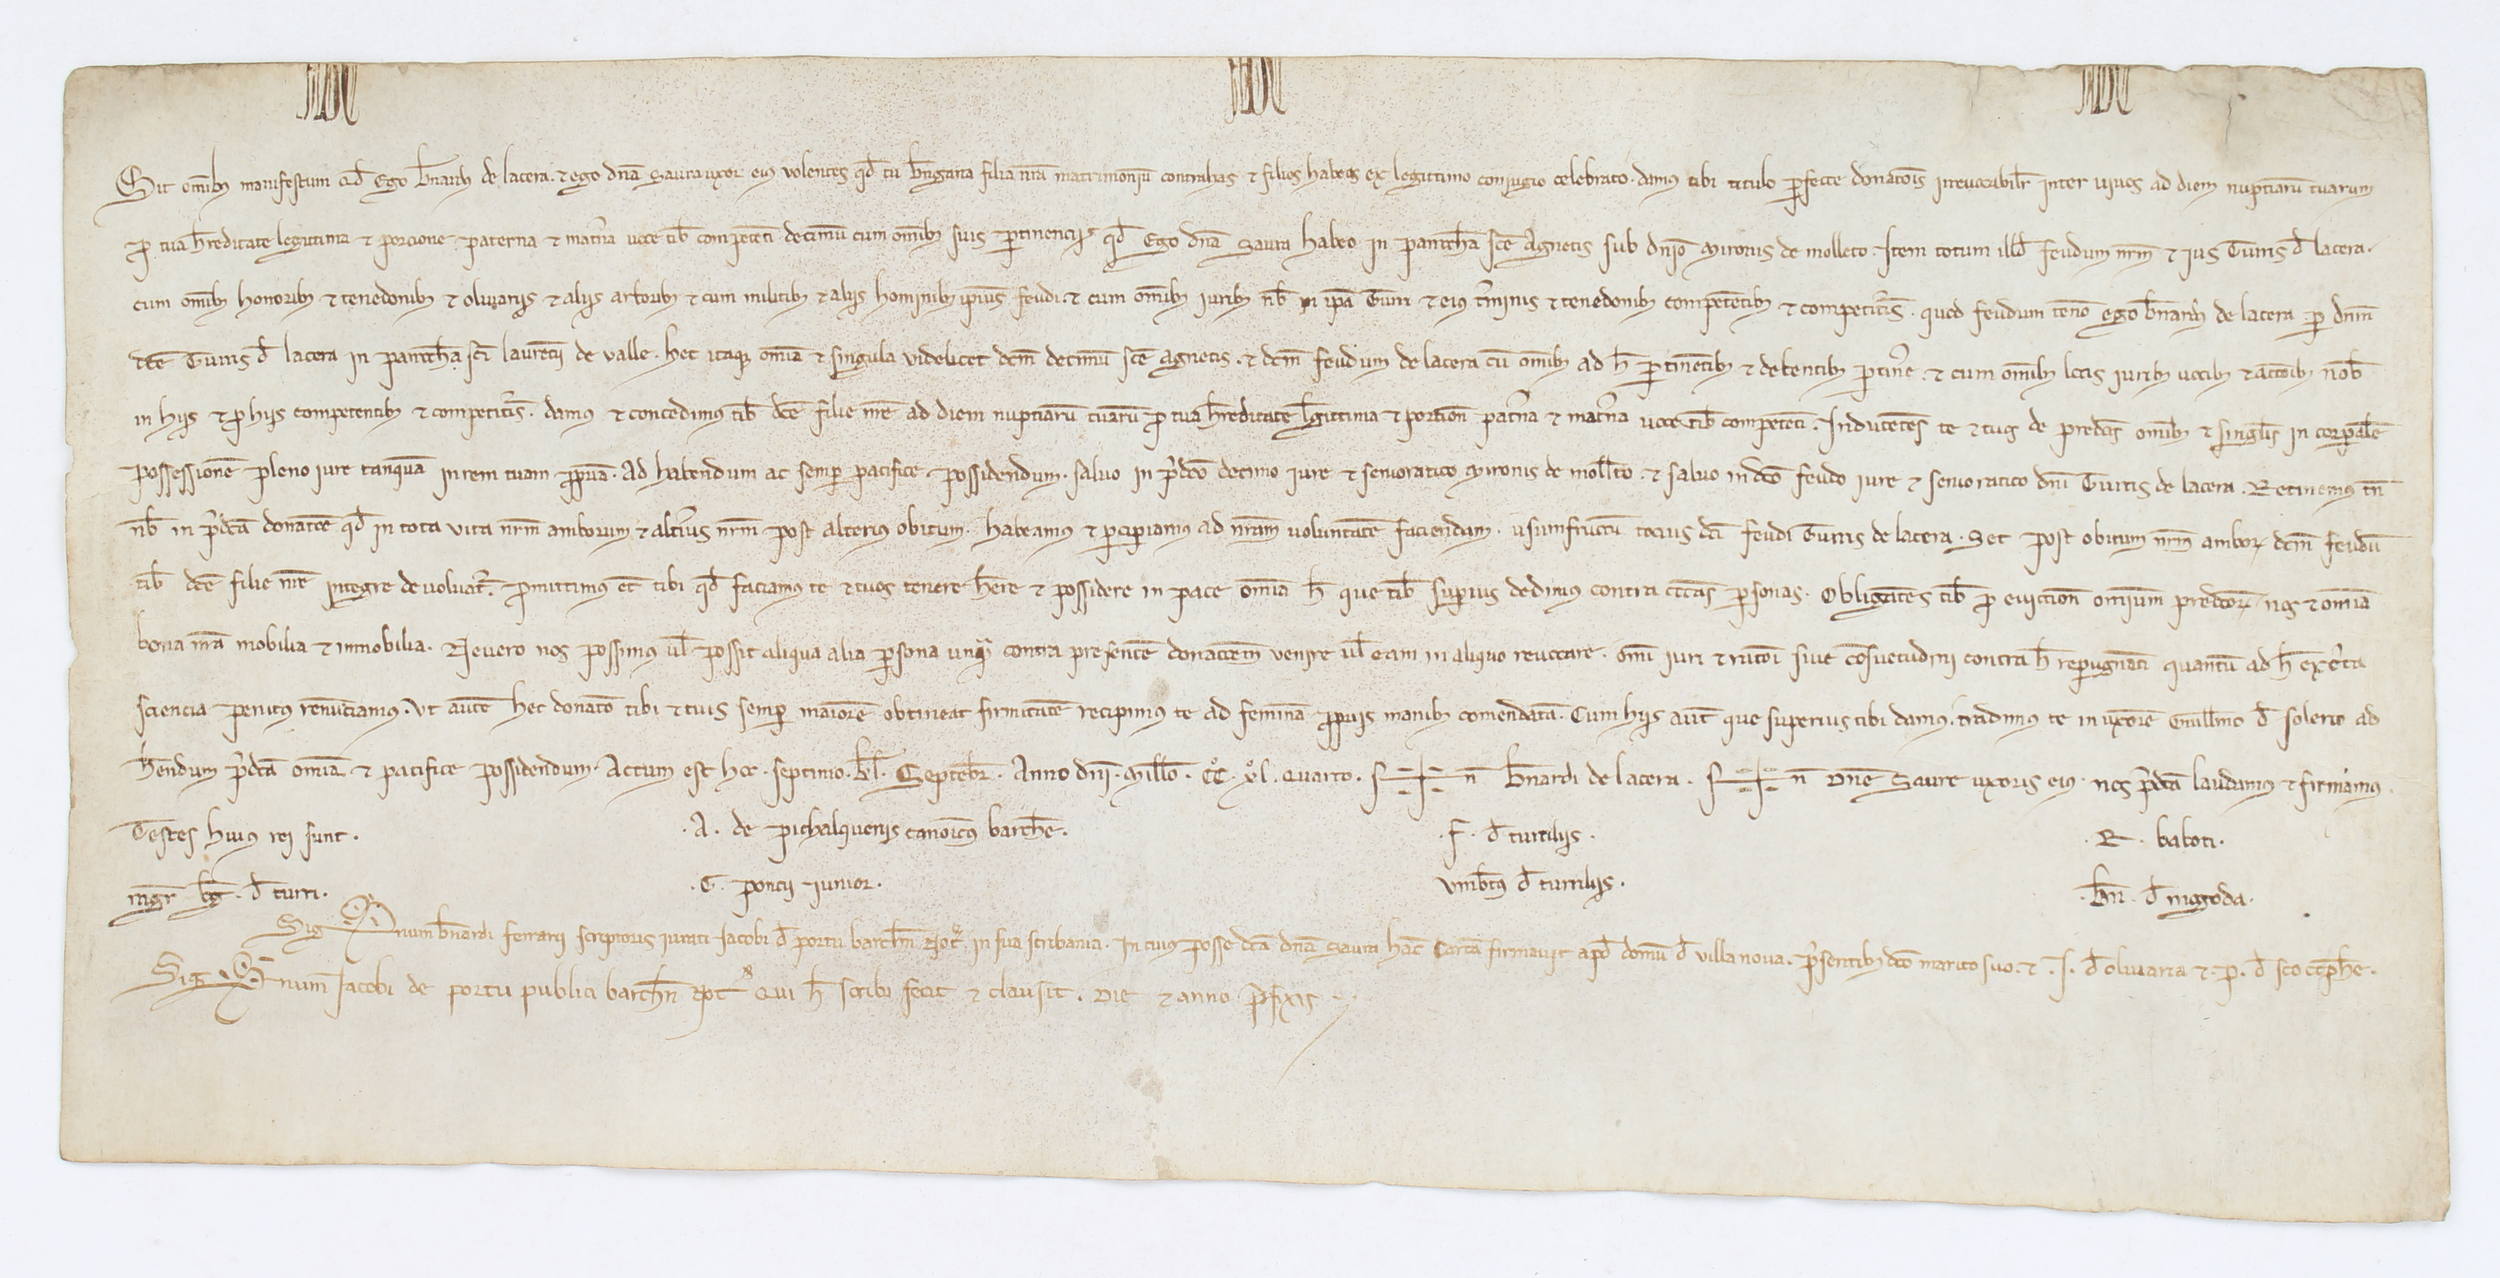 Sit omib⁹ manifestum qđ Ego b̄nard⁹ de lacera. et ego dn̄a Saura uxor ei⁹ volentes qđ tu b̄ngaria filia nr̄a matrimoniū contrahas et filios habeas ex legittimo coniugio celebrato. damus tibi titulo ꝑfecte donatōis irreuocabilr̄ inter uiuos ad diem nuptiarū tuarum
ꝓ tua h̄reditate legittima et porcione paterna et mat̄na uoce tib̄ competēti decimū cum om̄ib⁹ suis ꝑtinencijs qđ Ego dn̄a Saura habeo in parrochīa sc̄e Agnetis sub dn̄io Mironis de molleto. Item totum illđ feudum nr̄m et ius Turris đ lacera.
cum om̄ib⁹ honorib⁹ et tenedonib⁹ et oliuarijs et alijs arborib⁹ et cum militib⁹ et alijs hominib⁹ ip̄ius feudi. et cum om̄ib⁹ iurib⁹ nob̄ in ip̄a Turri et ei⁹ t̄minis et tenedonib⁹ competētib⁹ et competituris. quod feudum teneo ego b̄nard⁹ de lacera ꝑ dn̄m
dc̄e Turris đ lacera in parrochīa sc̄i laurēcij de valle. Hec itaq̨ om̄ia et singula videlicet dc̄m decimū sc̄e Agnetis. et dc̄m feudum de lacera cū om̄ib⁹ ad h̄ ꝑtinētib⁹ et debentib⁹ ꝑtin̄e. et cum om̄ib⁹ locis iurib⁹ uocib⁹ et actōib⁹ nob̄
in hijs et ꝓ hijs competentib⁹ et competituris. damus et concedimus tib̄ dc̄e filie nr̄e ad diem nuptiarū tuarū ꝓ tua h̄reditate l̄gittima et portion̄ pat̄na et mat̄na uoce tib̄ competēti. Inducētes te et tuos de predc̄is om̄ib⁹ et singulis in corꝑalē
possessionē pleno iure tanquā in rem tuam ꝓpriā. Ad habendum ac semꝑ pacifice possidendum. saluo in p̄dc̄o decimo iure et senioratico Mironis de moll̄to. et saluo in dc̄o feudo iure et senioratico dn̄i Turris de lacera. Retinemus tn̄
nob̄ in p̄dc̄a donatōe qđ in tota vita nr̄m amborum et alt̄ius nr̄m post alterius obitum. habeamus et ꝑcipiamus ad nr̄am uoluntatē faciendam. usumfructū tocius dc̄i feudi Turris de lacera. Set post obitum nr̄m amboꝝ dc̄m feudū
tib̄ dc̄e filie nr̄e integre deuoluat̄. ꝓmittimus et̄ tibi qđ faciamus te et tuos tenere h̄ere et possidere in pace om̄ia h̄ que tib̄ superius dedimus contra cc̄tas ꝑsonas. Obligātes tib̄ ꝓ euictiōn om̄ium predc̄oꝝ nos et om̄ia
bona nr̄a mobilia et inmobilia. Ne uero nos possimus ul̄ possit aliqua alia ꝑsona unq̄ contra presentē donatōem venire ul̄ eam in aliquo reuocare. om̄i iuri et ratōi siue cōsuetudini contra h̄ repugnāti quantū ad h̄ ex c̄ta
sciencia penitus renūciamus. Ut autē hec donatō tibi et tuis semꝑ maiorē obtineat firmitatē recipimus te ad feminā ꝓprijs manib⁹ comendatā. Cum hijs aut̄ que superius tibi damus. tradimus te in uxorē Guill̄mo đ solerio ad
h̄endum p̄dc̄a om̄ia et pacifice possidendum. Actum est hoc. septimo. kl̄. Septēbr̄. Anno dn̄i. Mill̄o. CC̊. xl̊. quarto. S+n̄ b̄nardi de lacera. S+n̄ Dn̄e Saure uxoris eius. nos p̄dc̄a laudamus et firmamus.
Testes hui⁹ rei sunt.  .A. de pichalquerijs canōic⁹ barch̄n.  .F. đ turrilijs.  .R. baboti.
mgr̄ b̄g. đ turri.  .G. poncij iunior.  Umb̄t⁹ đ turrilijs.  .b̄n. đ mogoda.
Sig+num b̄nardi ferrarij scriptoris iurati Iacobi đ portu barch̄n not̄. in sua scribania. In cuius posse dc̄a dn̄a Saura hāc Cartā firmauit apđ domū đ villa noua. p̄sentib⁹ dc̄o marito suo. et .I. đ oliuaria et .p. đ sc̄o
Sig+num Iacobi de portu publici barch̄n not̄ Qui h̄ scribi fecit et clausit. Die et anno p̄fixis